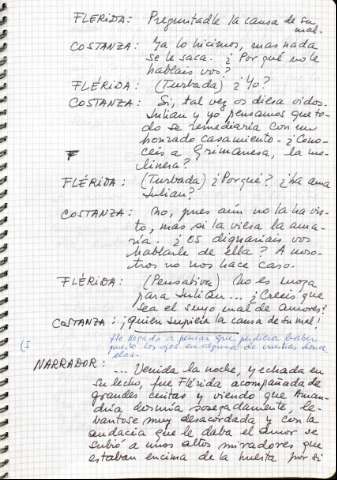 FLÉRIDA: Preguntadle la causa de su
mal.
COSTANZA: Ya lo hicimos, mas nada
se le saca. ¿Por qué no le
habláis vos?
FLÉRIDA: (Turbada) ¿Yo?
COSTANZA: Sí, tal vez os diera oídos.
Julián y yo pensamos que to-
do se remediaría con un
honrado casamiento. ¿Cono-
céis a Grimanesa, la mo-
linera?
FLÉRIDA: (Turbada) ¿Por qué? ¿La ama
Julián?
COSTANZA: No, pues aún no la ha vis-
to, mas si la viera la ama-
ría. ¿Os dignaríais vos
hablarle de ella? A noso-
tros no nos hace caso.
FLÉRIDA: (Pensativa) No es moza
para Julián... ¿Creéis que
sea el suyo mal de amores?
COSTANZA: ¡Quién supiera la causa de su mal!
He llegado a pensar que pudiera haber
puesto los ojos en alguna de vuestras donce
llas.
NARRADOR: ... Venida la noche, y echada en
su lecho, fue Flérida acompañada de
grandes cuitas y viendo que Aman-
dria dormía sosegadamente, le-
vantose muy desacordada y con la
audacia que le daba el amor se
subió a unos altos miradores que
estaban encima de la huerta por si